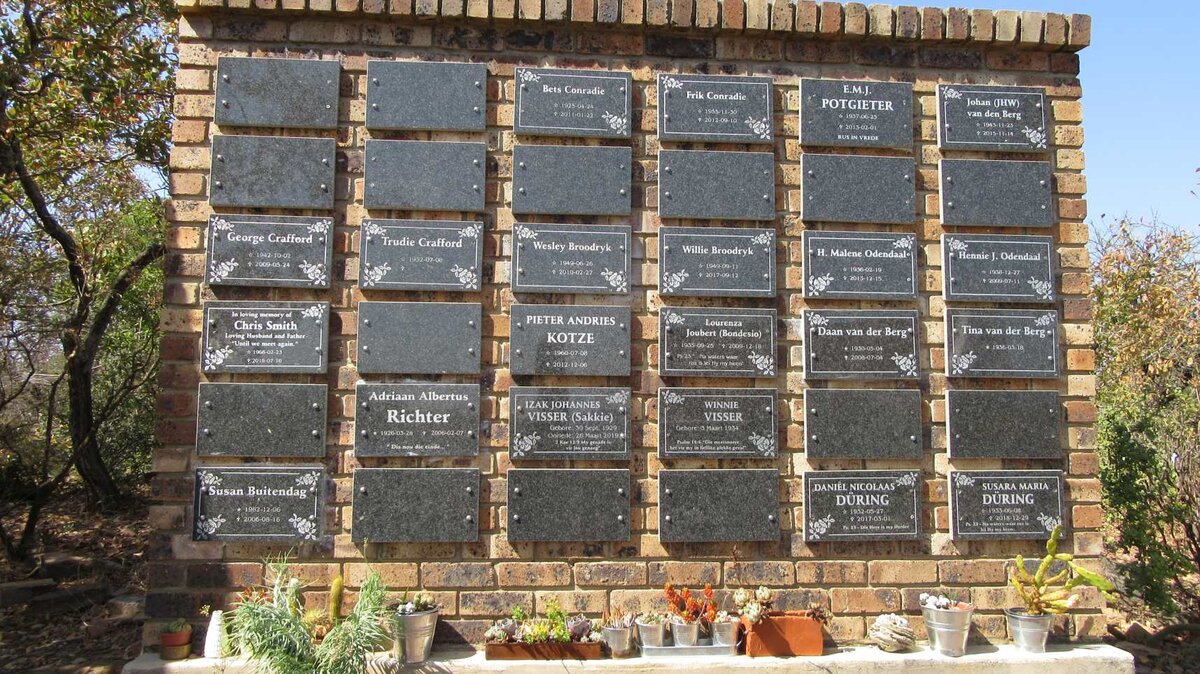 Bets Conradie
☆ 1925-04-24
✞ 2011-01-22
Frik Conradie
✞ 2012-09-10
E.M.J.
POTGIETER
☆ 1937-06-25
✞ 2013-02-01
RUS IN VREDE
Johan (JHW)
van den Berg
☆ 1943-11-25
✞ 2015-11-14
George Crafford
☆ 1942-10-02
✞ 2009-05-24
Trudie Crafford
☆ 1952-07-08
✞
Wesley Broodryk
☆ 1949-06-26
✞ 2010-02-27
Willie Broodryk
☆ 1949-09-11
✞ 2017-09-12
H. Malene Odendaal
☆ 1936-02-19
✞ 2015-12-15
Hennie J. Odendaal
☆ 1938-12-27
✞ 2009-07-11
In loving memory of
Chris Smith
Loving Husband and Father
"Until we meet again."
☆ 1968-02-23
✞ 2018-07-18
PIETER ANDRIES
KOTZE
☆ 1960-07-08
✞ 2012-12-06
Lourenza
Joubert (Bondesio)
☆ 1935-09-25 ✞ 2009-12-18
Ps 23 - Na waters waar
rus is lei Hy my heen
Daan van der Berg
☆ 1930-05-04
✞ 2008-07-08
Tina van der Berg
☆ 1936-03-18
Adriaan Albertus
Richter
☆ 1926-03-28 ✞ 2006-02-07
"Dis nou die einde..."
IZAK JOHANNES
VISSER (Sakkie)
Gebore: 30 Sept. 1929
Oorlede: 26 Maart 2019
2 Kor 12:9 My genade is
vir jou genoeg
WINNIE
VISSER
Gebore: 3 Maart 1934
Susan Buitendag
☆ 1962-12-06
✞ 2006-08-16
DANIËL NICOLAAS
DÜRING
☆ 1932-05-27
✞ 2017-03-01
Ps. 23 - Die Here is my Herder
SUSARA MARIA
DÜRING
☆ 1933-06-08
✞ 2018-12-29
Ps. 23 - Na waters waar rus is
lei Hy my heen.